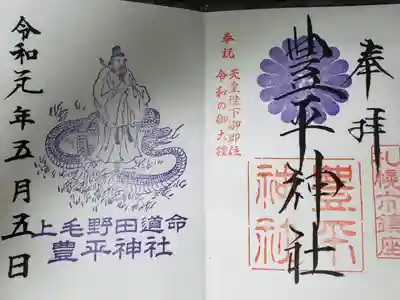 奉拝
札幌市鎮座
豊平神社
豊平神社
奉祝 天皇陛下御即位
令和の御大禮
上毛野田道命
豊平神社
令和元年五月五日